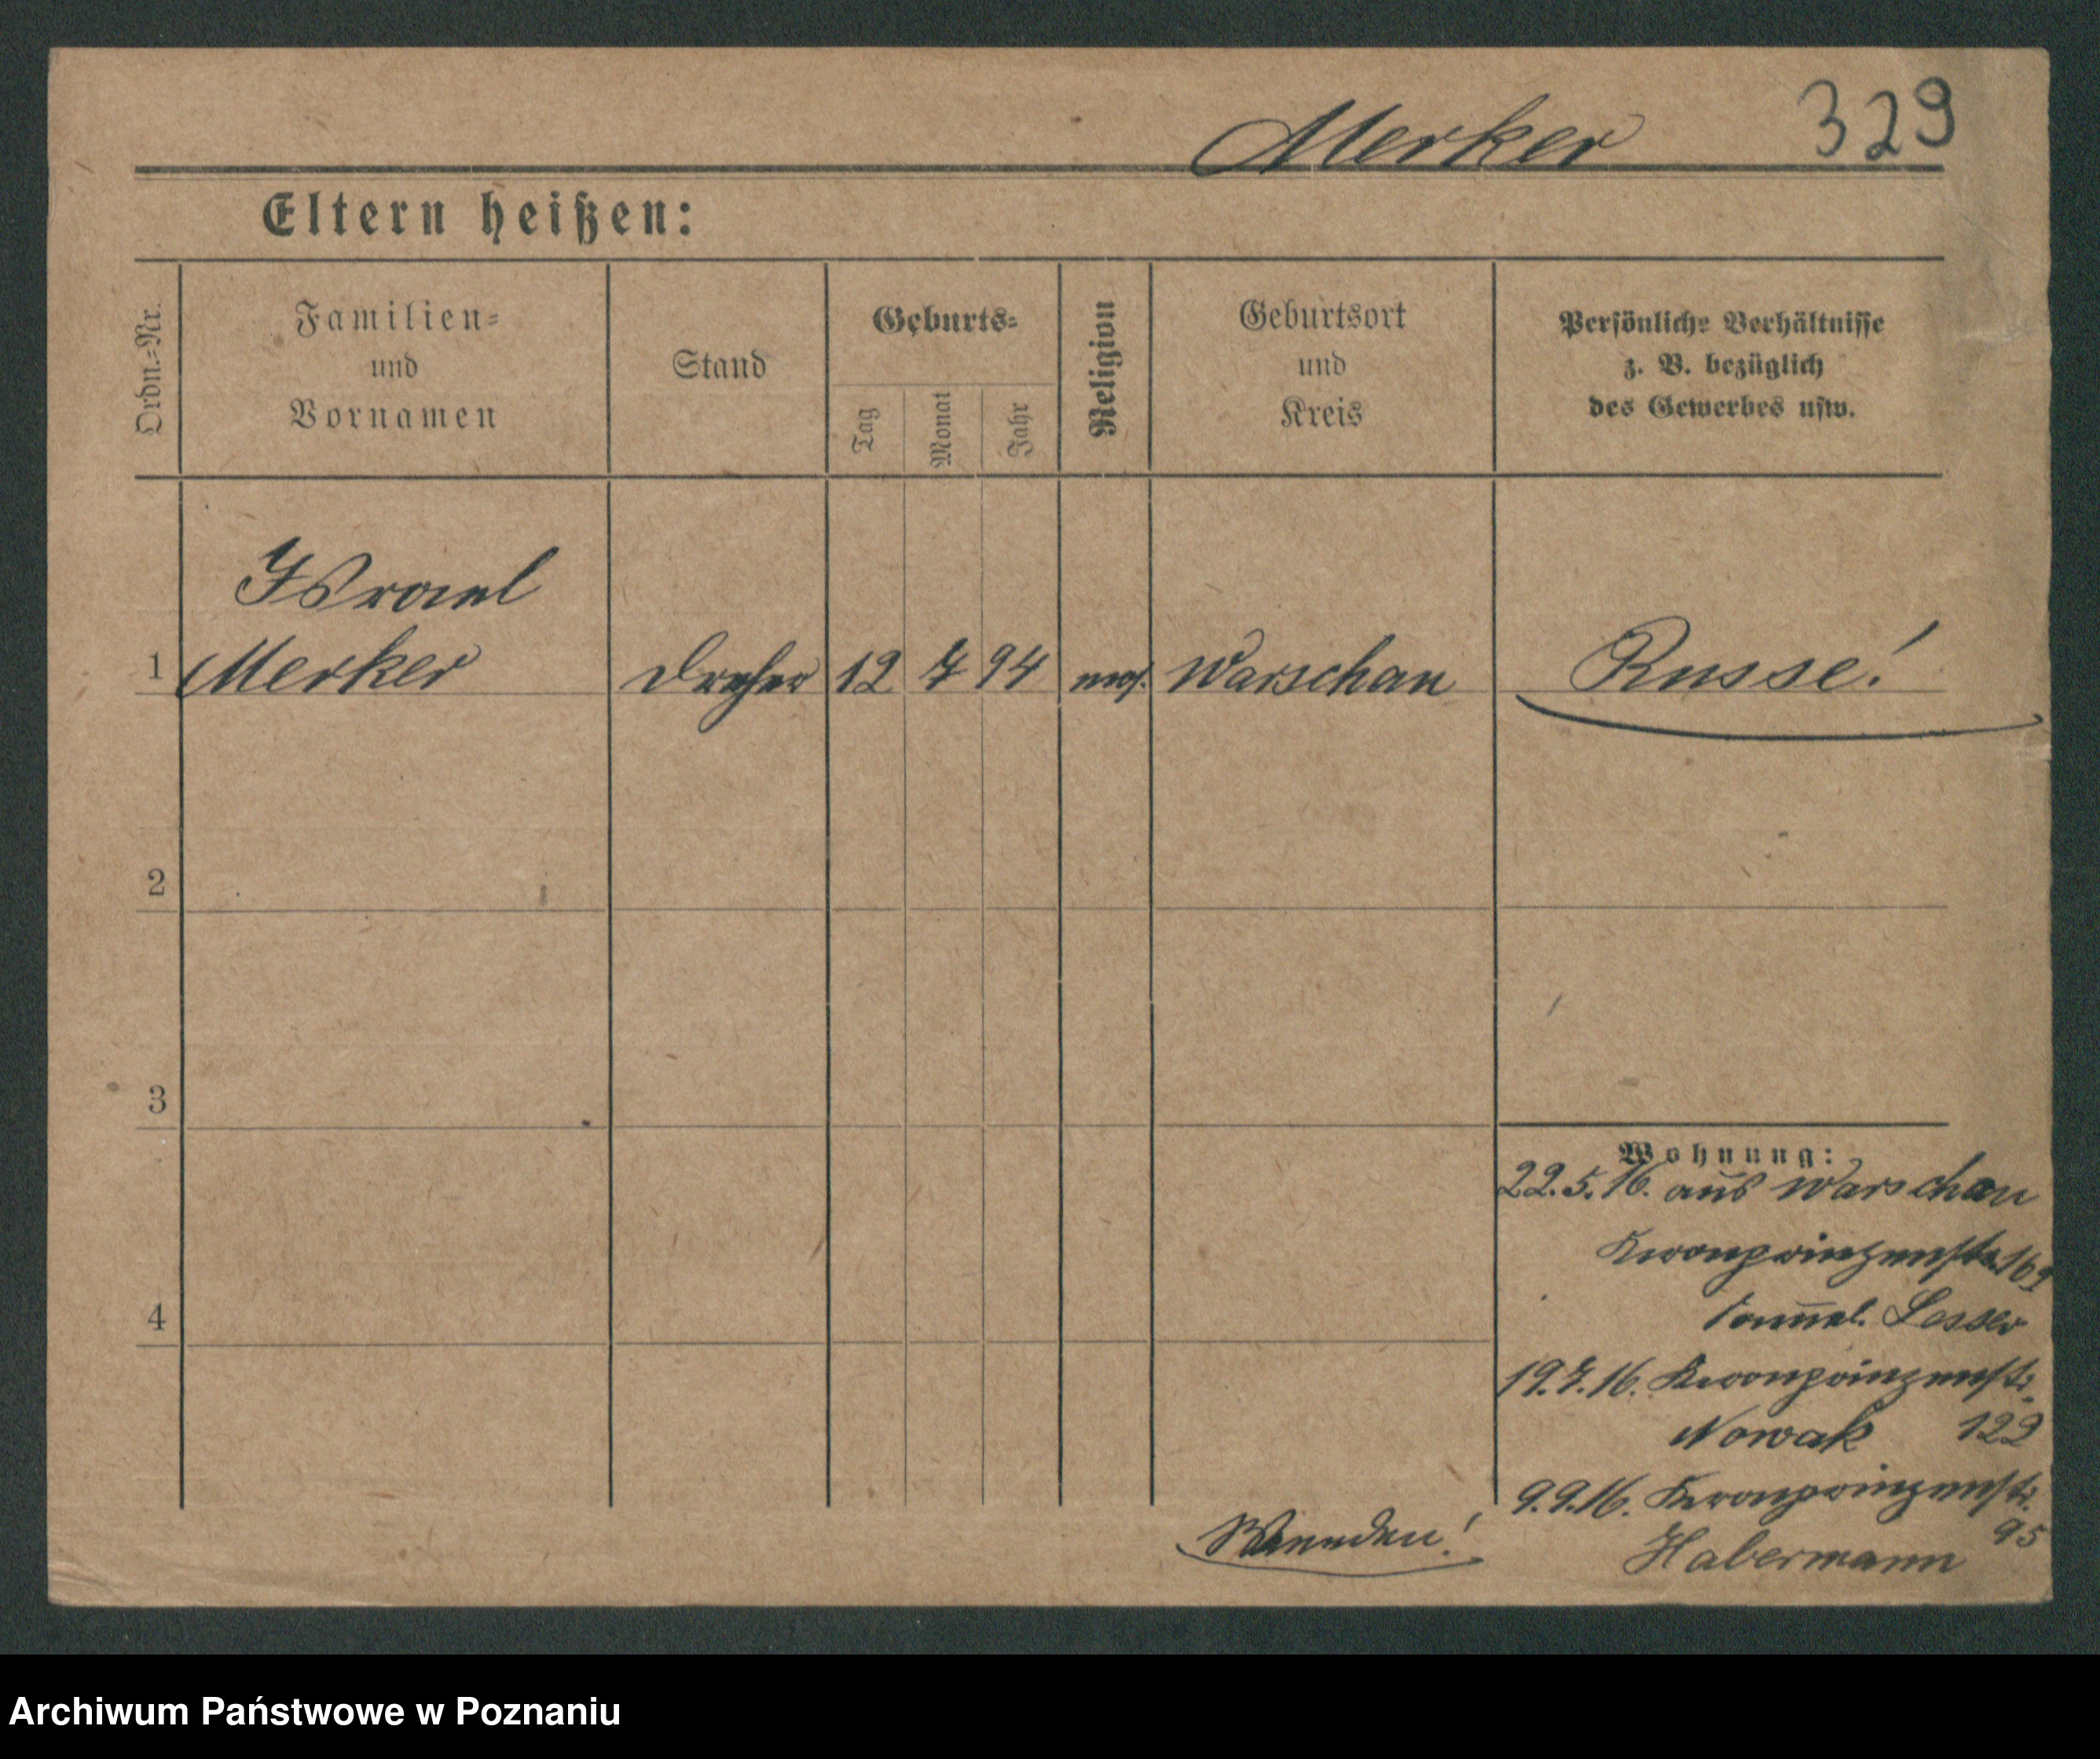 Merker 329
Eltern heißen:
Ordn.=Nr. Familien= und Vornamen Stand Geburts= Tag Monat Jahr Religion Geburtsort und Kreis Persönliche Verhältnisse z. B. bezüglich des Gewerbes usw.
Israel
1 Merker Dreher 12 7 94 mos. Warschau Russe!
2
3
4
Wohnung:
22.5.16. aus Warschau
Kronprinzenstr. 16
Lesser
19.7.16. Kronprinzenstr.
Nowak 122
9.9.16. Kronprinzenstr.
95
Habermann
Wenden!
Archiwum Państwowe w Poznaniu